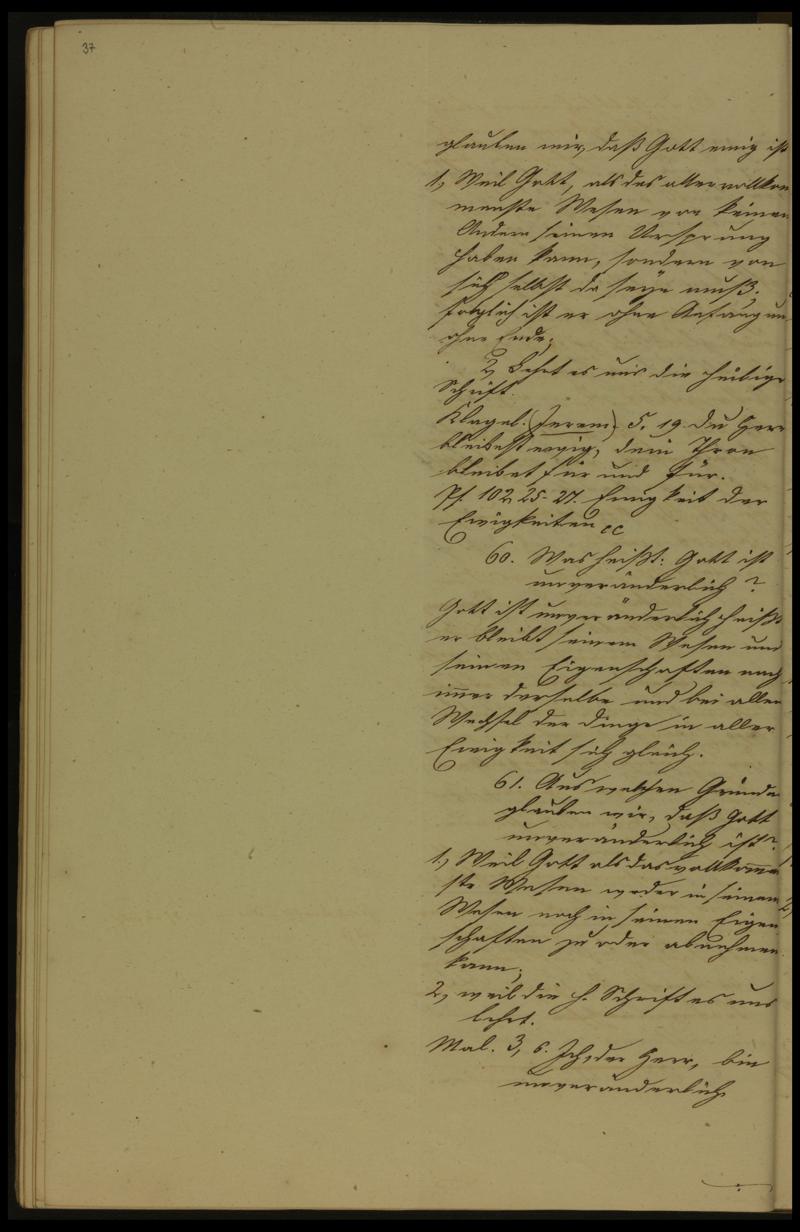 37
glauben wir, daß Gott ewig ist
1, Weil Gott, als das allervollkom
menste Wesen von keinem
Andern seinen Ursprung
haben kann, sondern von
sich selbst da seyn muß.
folglich ist er ohne Anfang un
ohne Ende;
2, Lehrt es uns die heilige
Schrift.
Klagel. (Jerem) 5, 19. Du Herr
bleibest ewig, dein Thron
bleibet für und für.
Ps. 102, 25-27. Ewigkeit der
Ewigkeiten cc
60. Was heißt: Gott ist
unveränderlich?
Gott ist unveränderlich heißt
er bleibt seinem Wesen und
seinen Eigenschaften nach
immer derselbe und bei allem
Wechsel der Dinge in aller
Ewigkeit sich gleich.
61. Aus welchen Gründen
glauben wir, daß Gott
unveränderlich ist?
1., Weil Gott als das vollkommen
ste Wesen weder in seinem
Wesen noch in seinen Eigen
schaften zu oder abnehmen
kann;
2, weil die h. Schrift es uns
lehrt.
Mal. 3, 6. Ich, der Herr, bin
unveränderlich